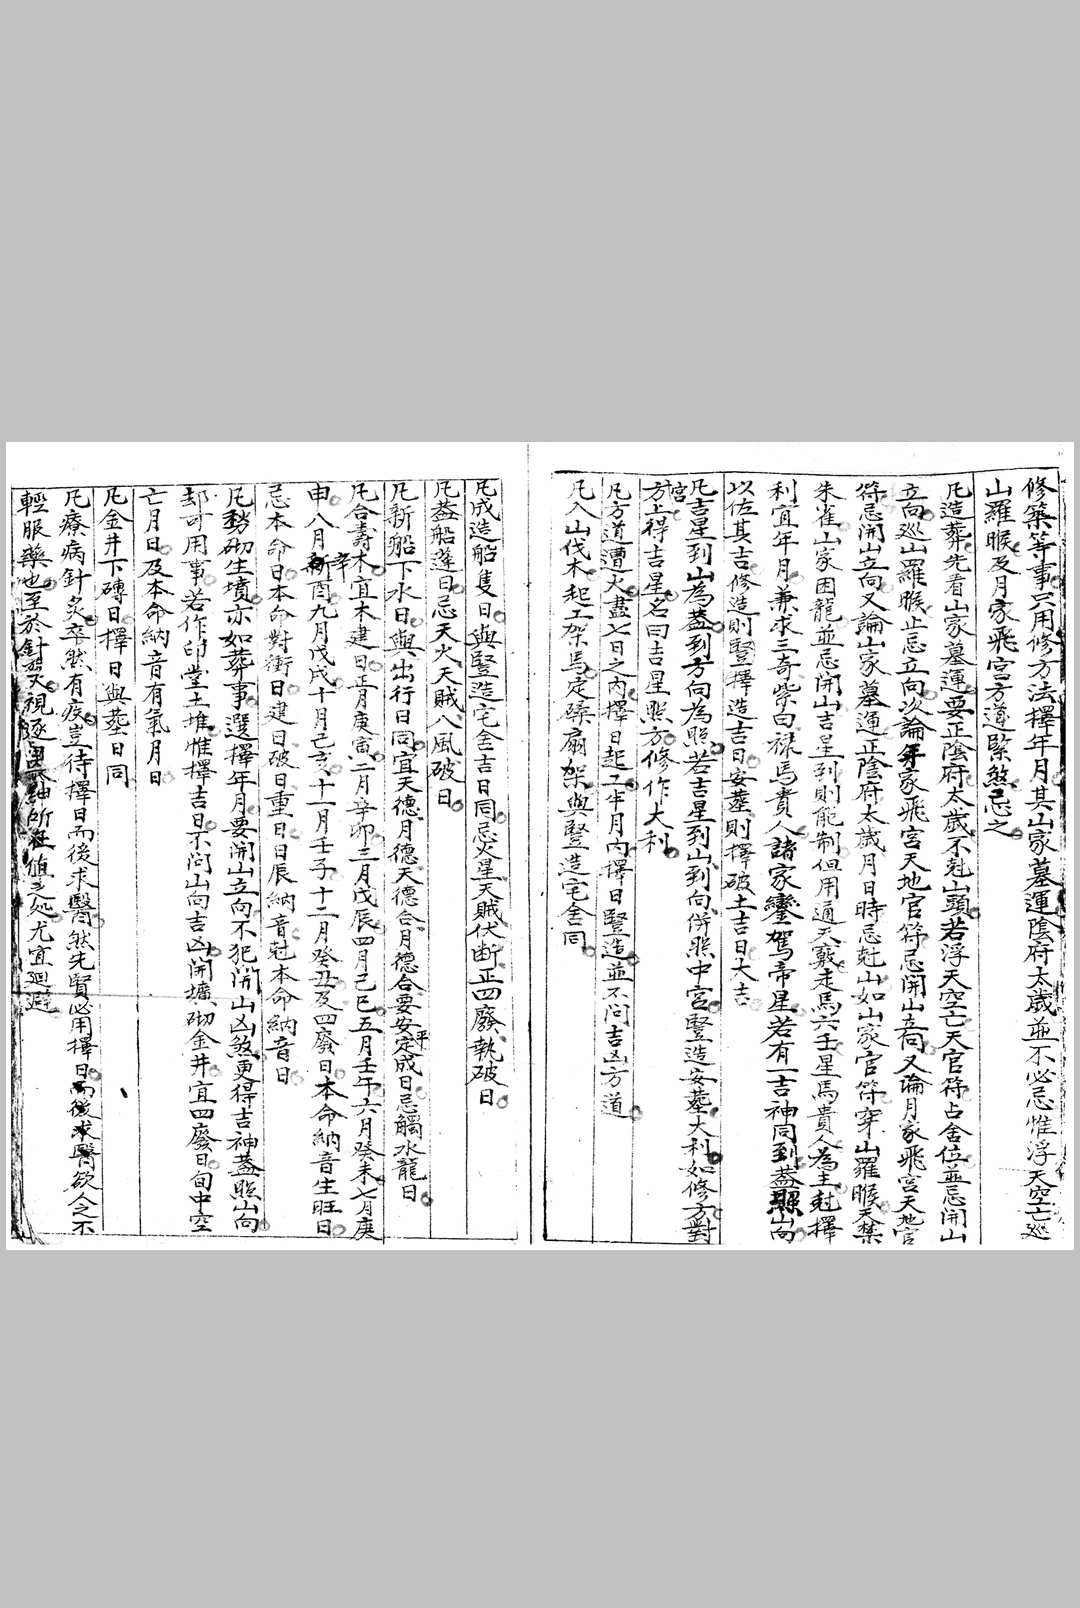 修築等事只用修方法擇年月其山家墓運陰府太歲並不必忌惟浮天空亡巡
山羅睺及月家飛宮方道緊煞忌之
凡造葬先看山家墓運要正陰府太歲不尅山頭若浮天空亡天官符占舍位並忌開山
立向巡山羅睺止忌立向次論年家飛宮天地官符忌開山立向又論月家飛宮天地官
符忌開山立向又論山家墓運正陰府太歲月日時忌尅山如山家官符穿山羅睺天禁
朱雀山家困龍並忌開山吉星到則能制但用通天竅走馬六壬星馬貴人為主尅擇
利宜年月兼求三奇紫白祿馬貴人諸家鑾駕帝星若有一吉神同到蓋照山向
以佐其吉修造則豎擇造吉日安葬則擇破土吉日大吉
凡吉星到山為蓋到方向為照若吉星到山到向併照中宮豎造安葬大利如修方對
宮方上得吉星名曰吉星照方修作大利
凡方道遭火盡七日之內擇日起工半月內擇日豎造並不問吉凶方道
凡入山伐木起工架馬定磉扇架與豎造宅舍同
凡成造船隻日與豎造宅舍吉日同忌火星天賊伏斷正四廢執破日
凡蓋船篷日忌天火天賊八風破日
凡新船下水日與出行日同宜天德月德天德合月德合要安平定成日忌觸水龍日
凡合壽木宜木建日正月庚寅二月辛卯三月戊辰四月己巳五月壬午六月癸未七月庚
申八月辛酉九月戊戌十月己亥十一月壬子十二月癸丑及四廢日本命納音生旺日
忌本命日本命對衝日建日破日重日日辰納音尅本命納音日
凡發砌生墳亦如葬事選擇年月要開山立向不犯開山凶煞更得吉神蓋照山向
却可用事若作印堂土堆惟擇吉日不問山向吉凶開壙砌金井宜四廢日旬中空
亡月日及本命納音有氣月日
凡金井下磚日擇日與葬日同
凡療病針灸卒然有疫豈待擇日而後求醫然先賢必用擇日而後求醫欲人之不
輕服藥也至於針灸又視逐日神所在值之処尤宜迴避